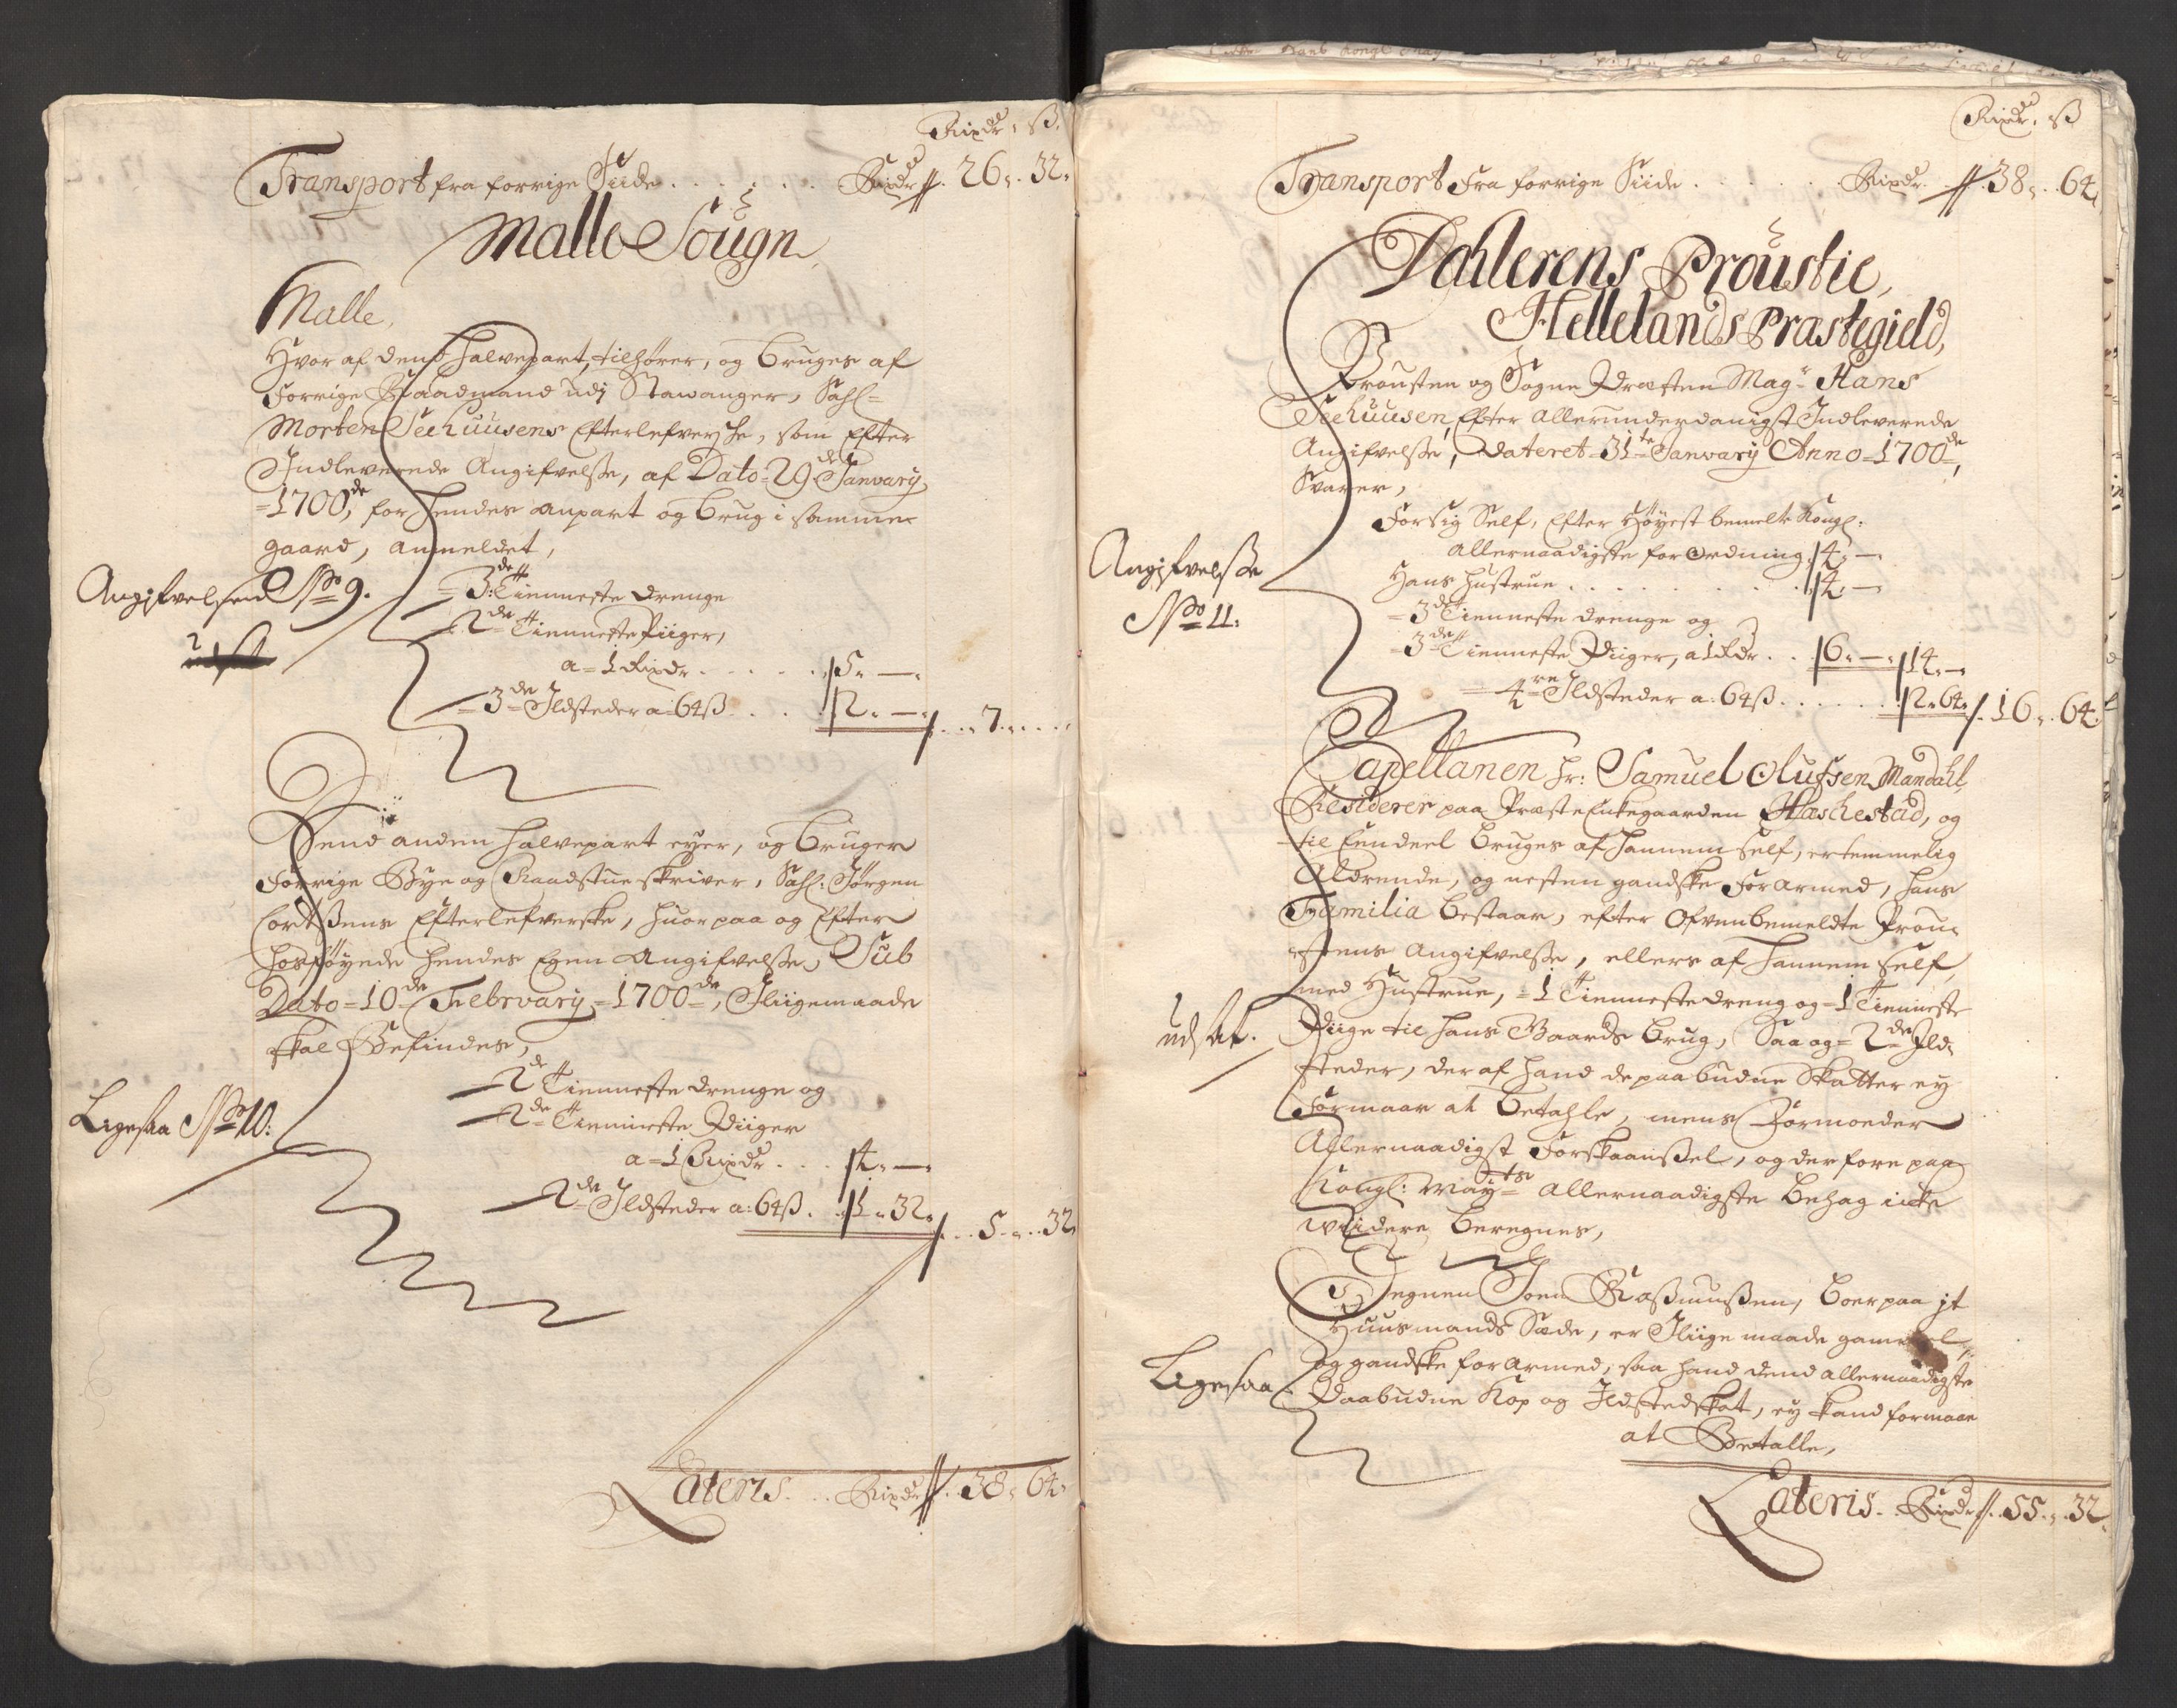 Rixdr. ß.
Transport fra forrige Siide . . . . . . Rixdr 26. 32.
Malle Sougn
Malle,
Hvor af dend halvepart, tilhører, og bruges af
Forrige Raadmand udj Stawanger, Sahl=
Morten Seehuusens Efterlefversche, som Efter
Indleverede Angifvelsse, af Dato=29de Janvary
=1700de, for hendes anpart og brug i samme
gaard, anmeldet,
Angifvelsen No 9.
=3de Tienneste drenge
2de Tienneste Piiger,
a=1 Rixdr . . . . . 5. —.
=3de Ildsteder a: 64ß . . . 2. —. . . . 7. . . .
Dend anden halvepart eyer, og bruger
Forrige Bye og Raadstueskriver, Sahl: Jørgen
Cortßens Efterlefverske, huorpaa og Efter
hosføyede hendes Egen Angifvelsse, Sub
Dato=10de Febrvary=1700de, Iliigemaade
skal Befindes,
2de Tienneste drenge og
Ligesaa No 10:
2de Tienneste Piiger
a=1 Rixdr . . . 4. —.
2de Ildsteder a: 64ß . . 1. 32. . . 5. . . 32
Lateris. . . Rixdr 38. 64.
Rixdr. ß
Transport Fra forrige Siide . . . . . Rixdr. 38. . 64.
Dahlerens Proustie,
Hellelands Præstegield,
Prousten og Sogne Præsten Magr Hans
Seehuusen, Efter allerunderdanigst Indleverede
Angifvelsse, Dateret=31te Janvary Anno=1700de,
Svarer,
For sig Self, Efter Høyest bemelte Kongl:
allernaadigste forordning, 4. —
Angifvelsse
Hans Hustrue . . . . . . . . 4. —
No 11:
=3de Tienneste drenge og
=3de Tienneste Piiger, a 1 Rdr . . 6. —. 14. —.
=4re Ildsteder a: 64ß . . . . . . 2. 64. . 16. . 64.
Capellanen hr: Samuel Olufsen Mandahl,
Residerer paa Præste Enkegaarden Hæschestad, og
til Eendeel bruges af hannem self, er temmelig
Aldrende, og nesten gandske Forarmed, hans
Familia bestaar, efter ofvenbemeldte Prou=
stens Angifvelsse, ellers af hannem self
med Hustrue, =1 Tienneste dreng og=1 Tienneste
ud at.
Piige til hans Gaards brug, Saa og=2de Ild=
steder, der af hand de paabudne Skatter ey
Formaar at Betahle, mens Formoeder
Allernaadigst Forskaanßel, og derfore paa
Kongl: Mayts allernaadigste behag icke
widere beregnes,
Degnen Joen Raßmußen, boer paa it
Huusmands Sæde, er Iliige maade gammel,
Ligesaa
og gandske forarmed, saa hand dend allernaadigste
Paabudne Kop og Ildstedskat, ey kand formaae
at Betalle,
Lateris. Rixdr. 55. . 32.